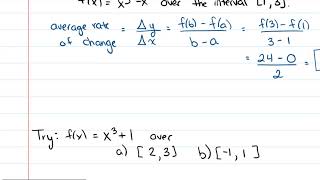 f(x) = x³ - x over the interval [1, 3].
average rate of change = Δy/Δx = f(b) - f(a)/b - a = f(3) - f(1)/3 - 1
= 24 - 0/2 =
Try: f(x) = x³ + 1 over
a) [2, 3] b) [-1, 1]